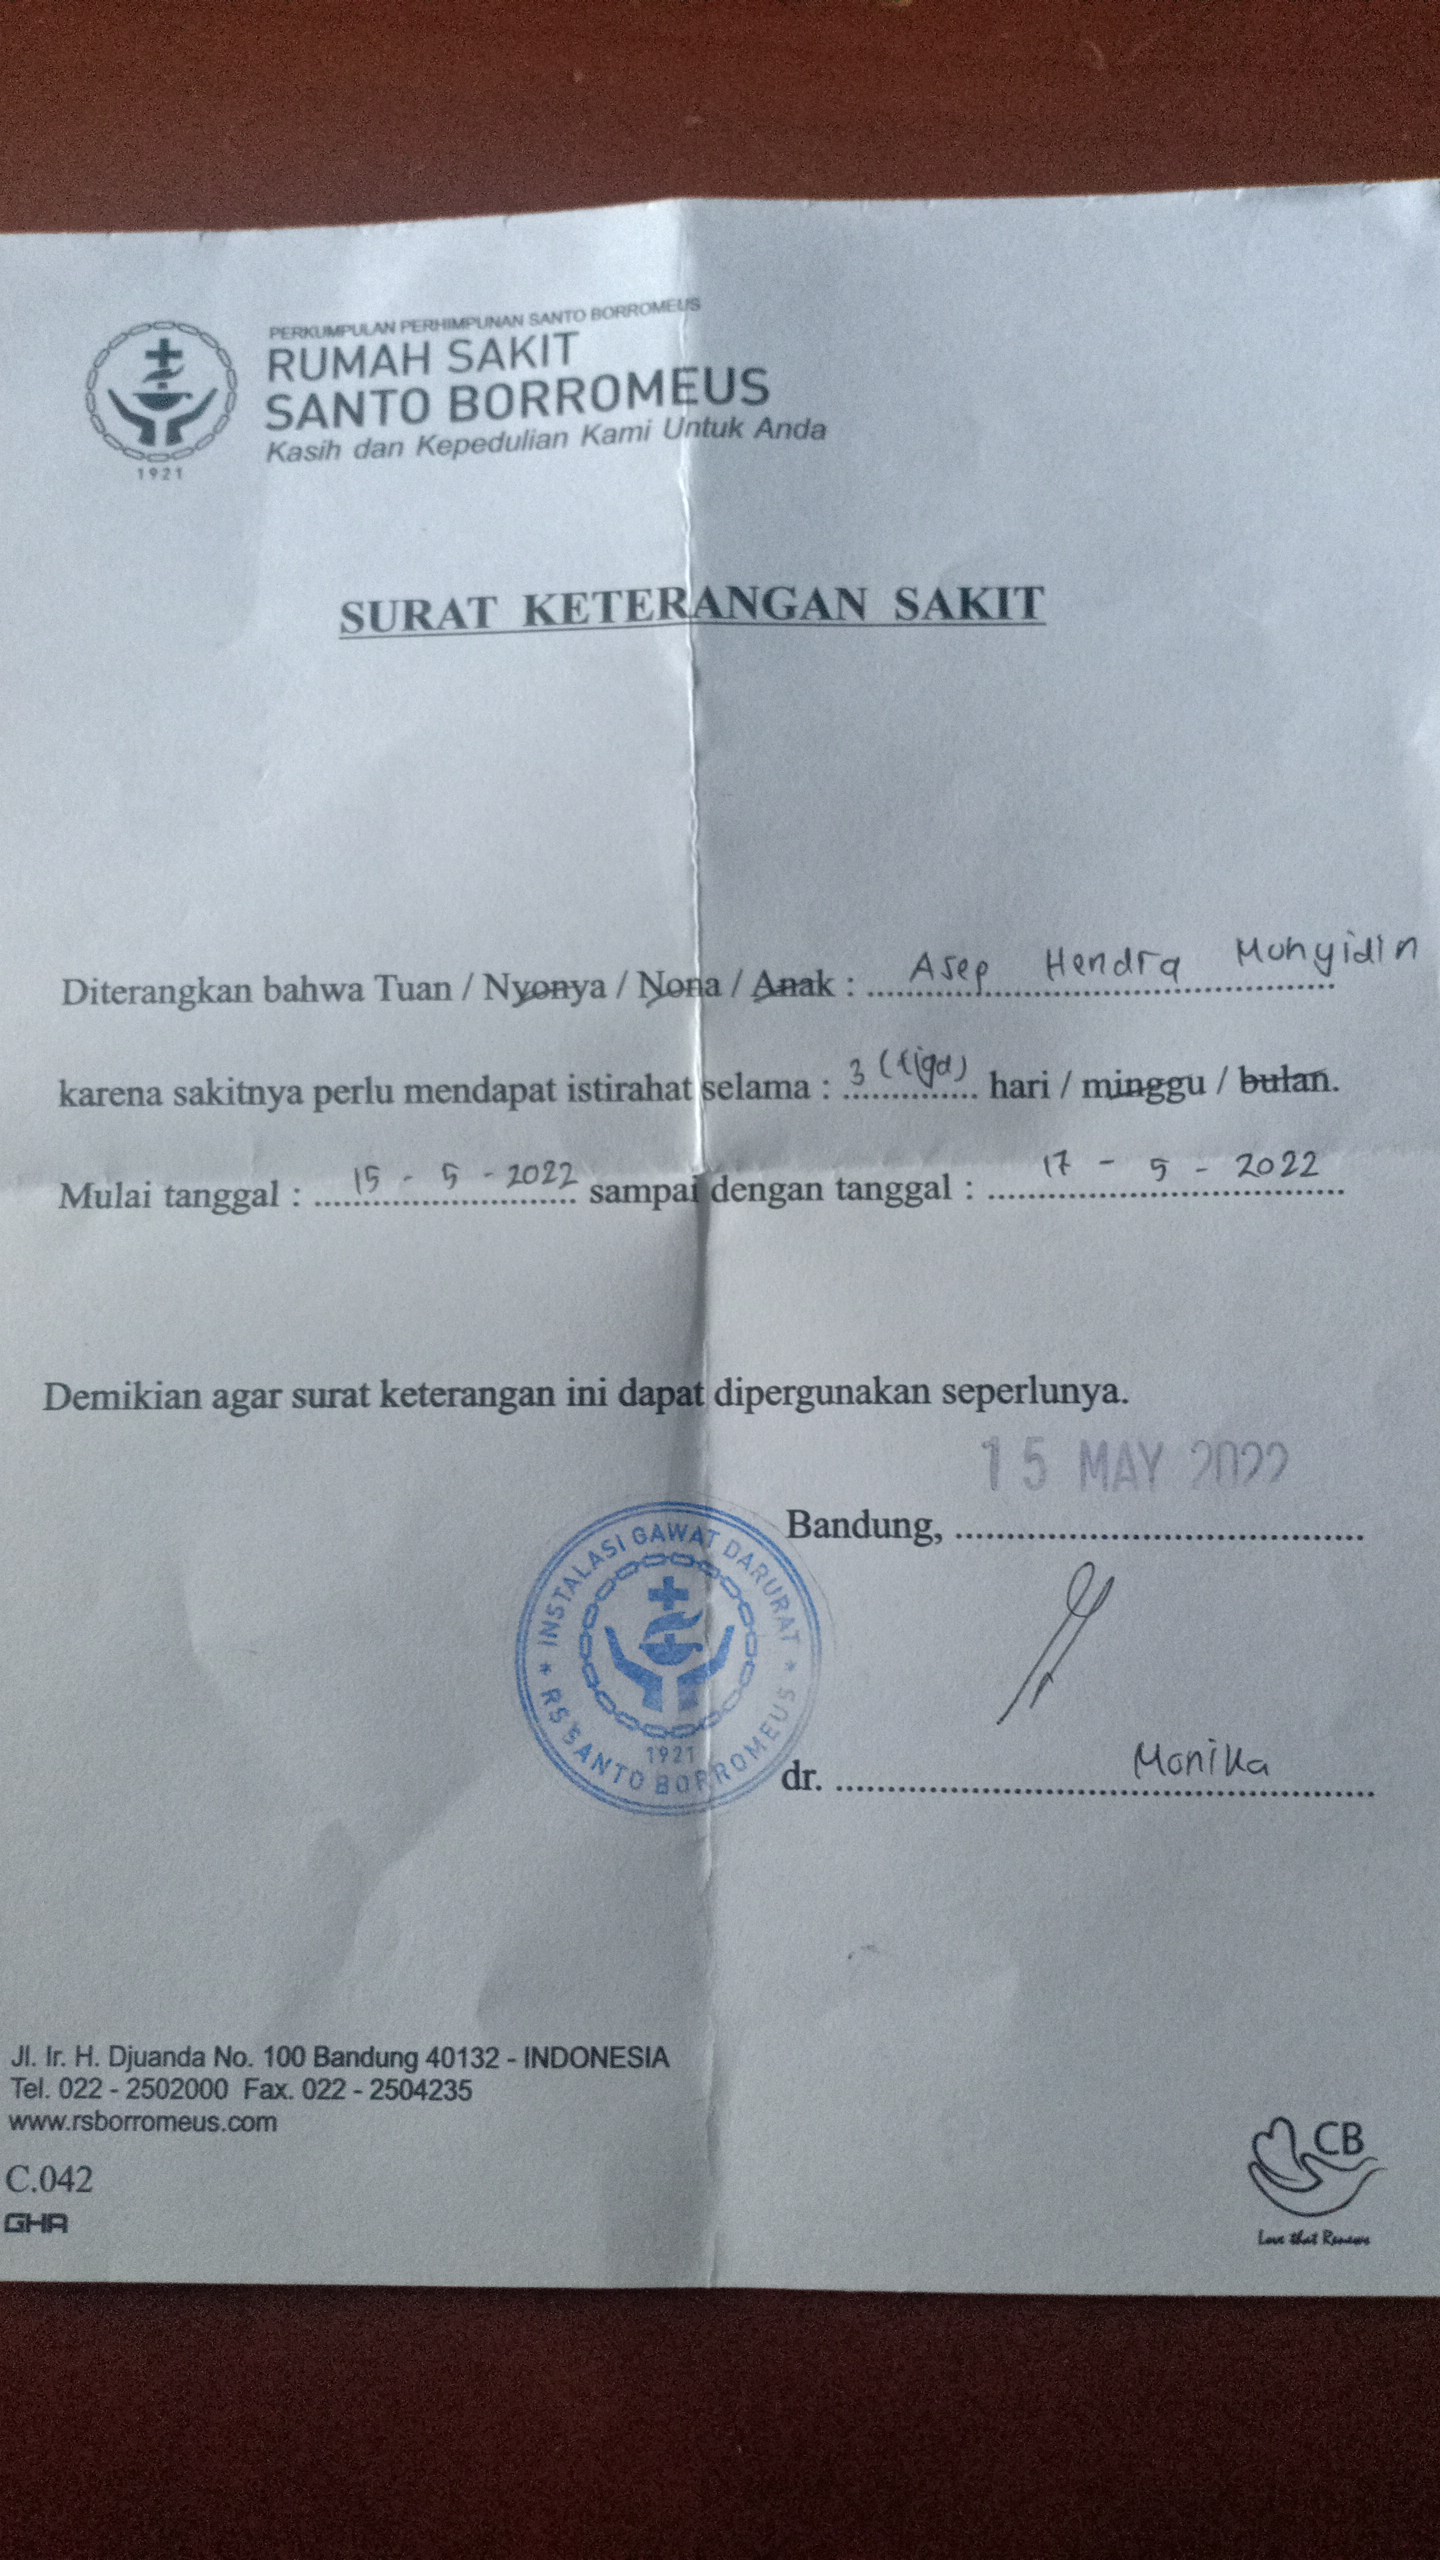 PERKUMPULAN PERHIMPUNAN SANTO BORROMEUS
RUMAH SAKIT
SANTO BORROMEUS
Kasih dan Kepedulian Kami Untuk Anda
1921
SURAT KETERANGAN SAKIT
Diterangkan bahwa Tuan / Nyonya / Nona / Anak : Asep Hendra Muhyidin
karena sakitnya perlu mendapat istirahat selama : 3 (tiga) hari / minggu / bulan.
Mulai tanggal : 15 - 5 - 2022 sampai dengan tanggal : 17 - 5 - 2022
Demikian agar surat keterangan ini dapat dipergunakan seperlunya.
15 MAY 2022
Bandung,
INSTALASI GAWAT DARURAT
RS SANTO BORROMEUS
1921
dr. Monika
Jl. Ir. H. Djuanda No. 100 Bandung 40132 - INDONESIA
Tel. 022 - 2502000 Fax. 022 - 2504235
www.rsborromeus.com
C.042
GHA
CB
Love that Renews